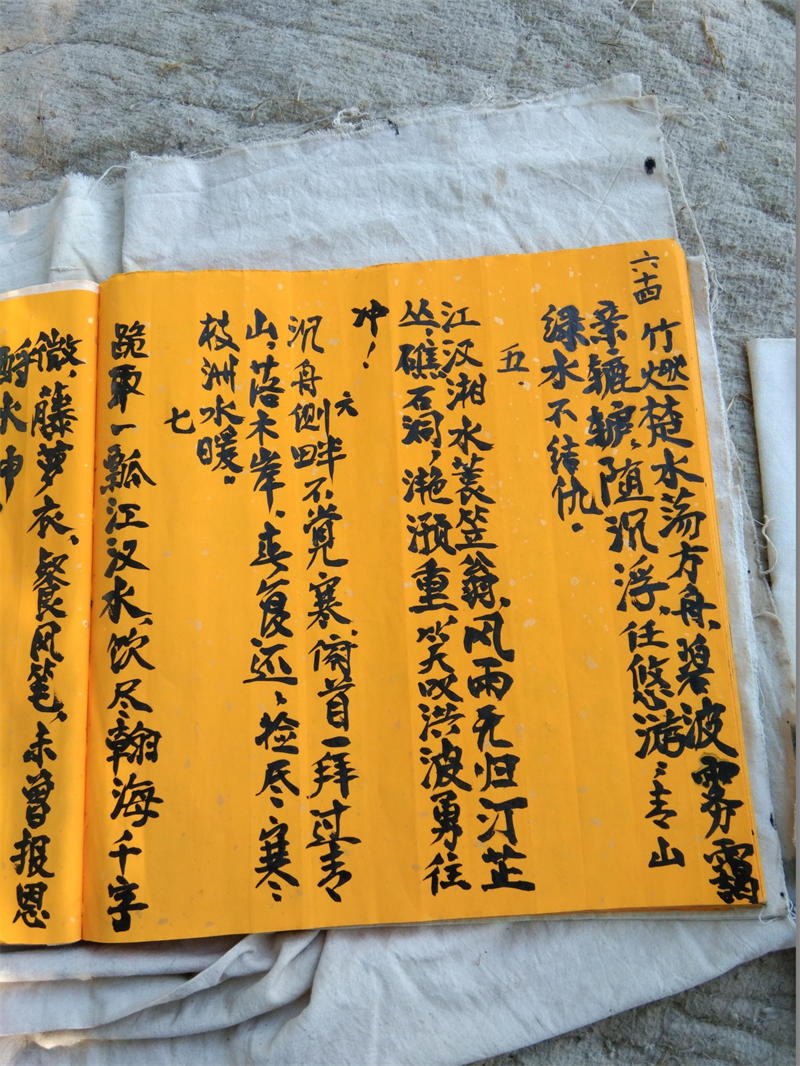 六十四
竹燃楚水荡方舟，碧波雾霭
亲辘轳，随沉浮，任悠游，青山
绿水不结仇。
五
江汉湘水蓑笠翁，风雨无归汀芷
丛，礁石洞，滟滪重，笑叹洪波勇往
冲！
六
沉舟侧畔不觉寒，俯首一拜过青
山，落木岸，春复还，捡尽寒
枝洲水暖。
七
跪取一瓢江汉水，饮尽翰海千字
微，藤萝衣，餐风笔，未曾报恩
酹水神